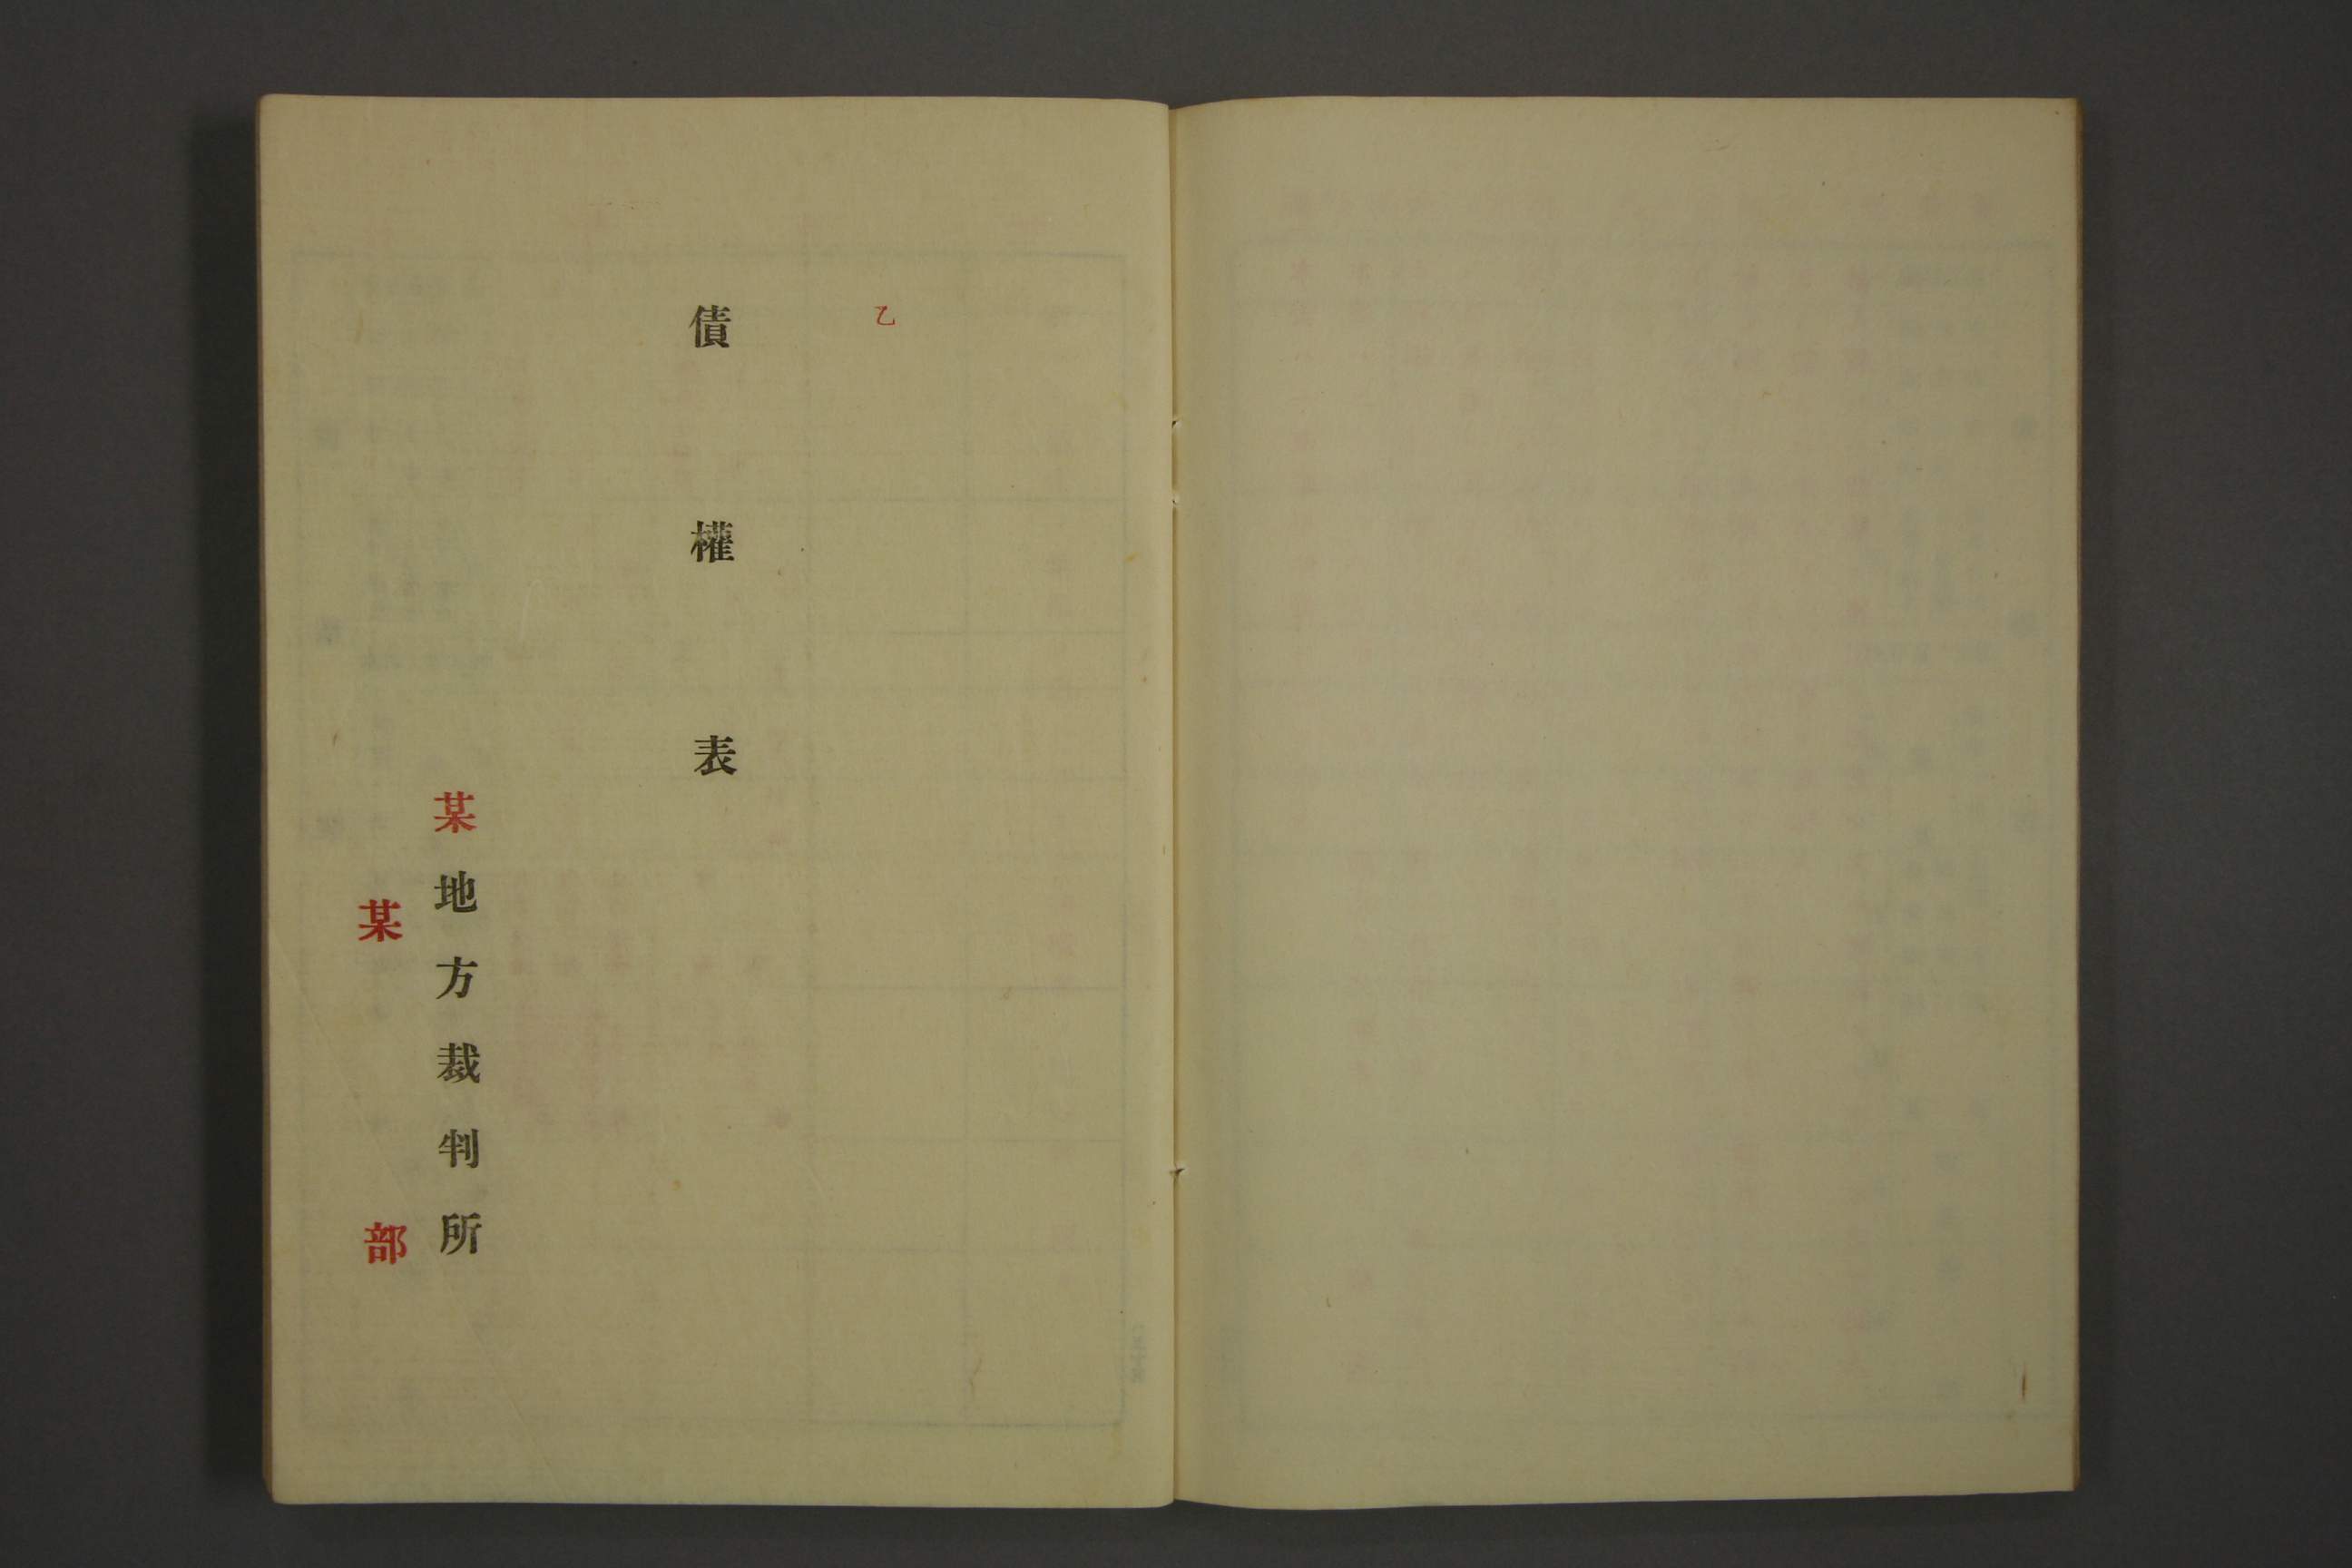 乙
債權表
某地方裁判所
某部